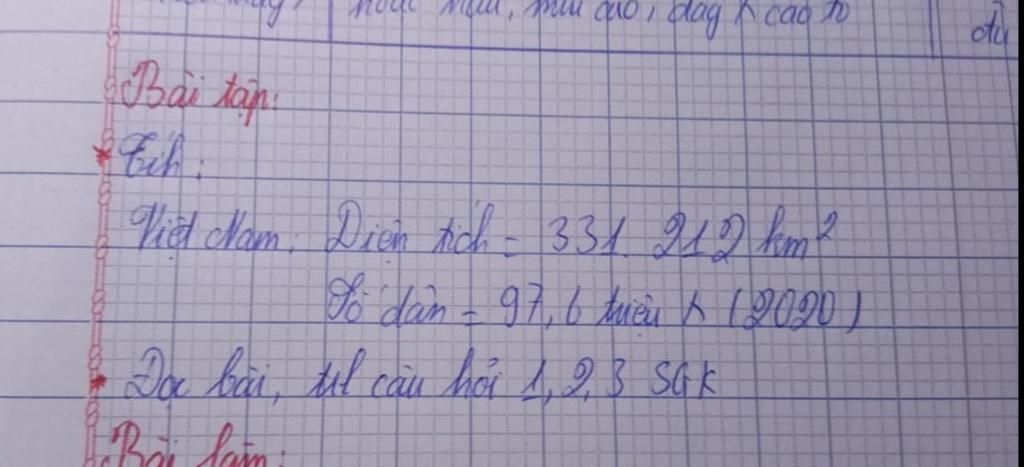 hoặc mưa, mưa rào, đag h cao to
Bài tập:
* Tính:
Việt Nam: Diện tích = 331.212 km²
Số dân = 97,6 triệu h (2020)
* Đọc bài, trl câu hỏi 1, 2, 3 SGK
Bài làm: